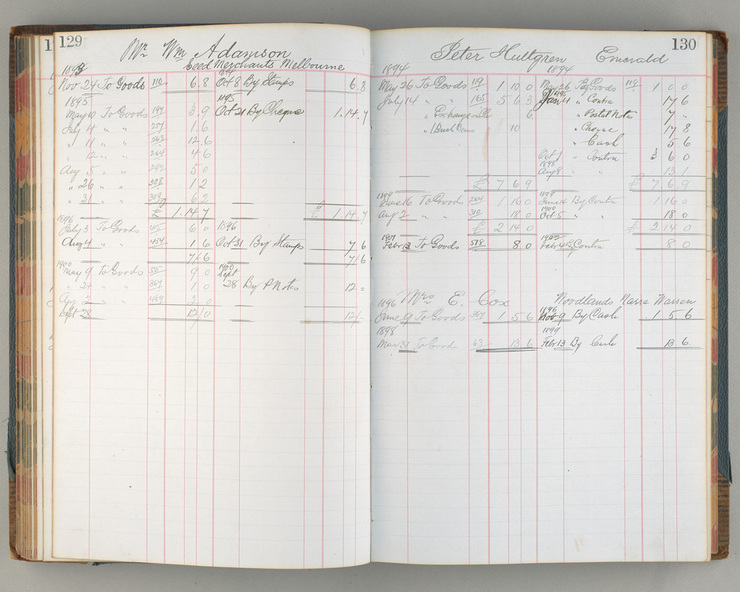 129
Mr Wm Adamson
Seed Merchants Melbourne
Nov 24 To Goods 119 6. 8 Oct 8 By Stamps 6. 8
1895 1895
May 10 To Goods 3. 9 Oct 21 By Cheque 1. 14. 7
July 4 " " 1. 6
" 11 " " 12. 6
4 6
Aug 5 " 5 0
" 26 " 1 2
" 31 " 6 2
£ 1. 14. 7 £ 1. 14. 7
1896
July 3 To Goods 6 0 1896
Aug 4 " " 1 6 Oct 31 By Stamps 7 6
7/6 7/6
1900 1900
May 9 To Goods 9 0 Sept
" 21 " " 1 0 28 By P Notes 12. 0
Aug 2 " 2. 0
Sept 28 12/0 12/-
130
Peter Hultgren Emerald
1894 1894
May 26 To Goods 119 1 10 0 May 26 By Goods 119 1 0 0
July 14 " " 5 6 3 Jan 11 " Contra 17 6
" Exchange 6 " Postal Notes 7 -
10 " Cheque 17 8
" Cash 5 6
Oct 1 " Contra 3 6 0
Aug 8 " 13 1
£ 7 6 9 £ 7 6 9
June 16 To Goods 1 16 0 June 14 By Contra 1 16 0
Aug 2 " " 18. 0 Oct 5 " 18. 0
£ 2 14 0 £ 2 14 0
Feb 13 To Goods 578 8 0 By Contra 8 0
1896 Mrs E. Cox Woodlands Narre Warren
June 9 To Goods 1 5 6 Nov 9 By Cash 1 5 6
1898 1899
Mar 31 To Goods 13 6 Feb 13 By Cash 13 6